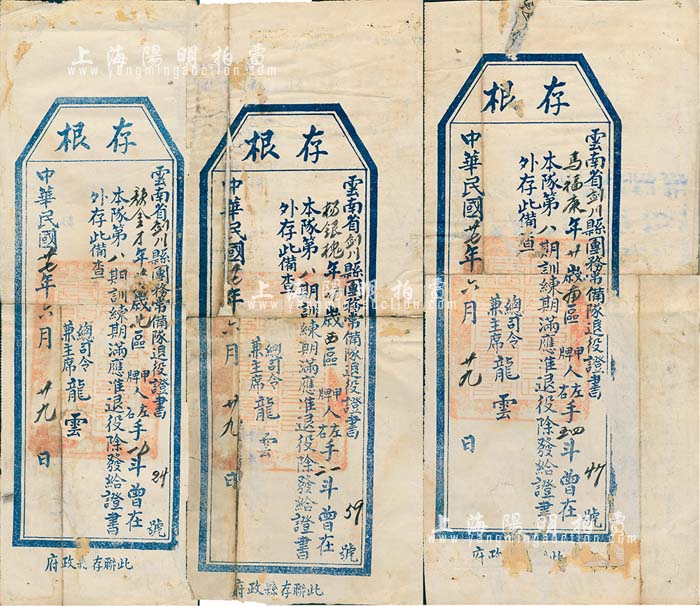 上海陽明拍賣
www.yangmingauction.com
存根
雲南省劍川縣團務常備隊退役證書 號
年 歲 區 甲牌 人 左右 手 斗 曾在
本隊第八期訓練期滿應准退役除發給證書
外存此備查
總司令
兼主席 龍雲
中華民國廿七年六月廿九日
此聯存縣政府
存根
雲南省劍川縣團務常備隊退役證書 59 號
楊銀槐年 歲西區 甲牌 人 左右 手 斗 曾在
本隊第八期訓練期滿應准退役除發給證書
外存此備查
總司令
兼主席 龍雲
中華民國廿七年六月廿九日
此聯存縣政府
存根
雲南省劍川縣團務常備隊退役證書 47 號
馬福庚年廿歲南區 甲牌 人 左右 手 四 斗 曾在
本隊第八期訓練期滿應准退役除發給證書
外存此備查
總司令
兼主席 龍雲
中華民國廿七年六月廿九日
政府
上海陽明拍賣
www.yangmingauction.com